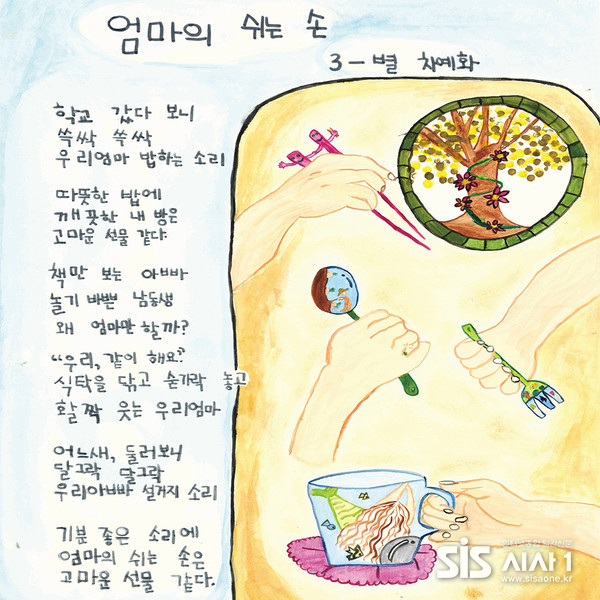 엄마의 쉬는 손
3-별 차예화
학교 갔다 보니
쓱싹 쓱싹
우리엄마 밥하는 소리
따뜻한 밥에
깨끗한 내 방은
고마운 선물 같다.
책만 보는 아빠
놀기 바쁜 남동생
왜 엄마만 할까?
"우리, 같이 해요?
식탁을 닦고 숟가락 놓고
활짝 웃는 우리엄마
어느새, 둘러보니
달그락 달그락
우리아빠 설거지 소리
기분 좋은 소리에
엄마의 쉬는 손은
고마운 선물 같다.
sis 시사1
www.sisaone.kr